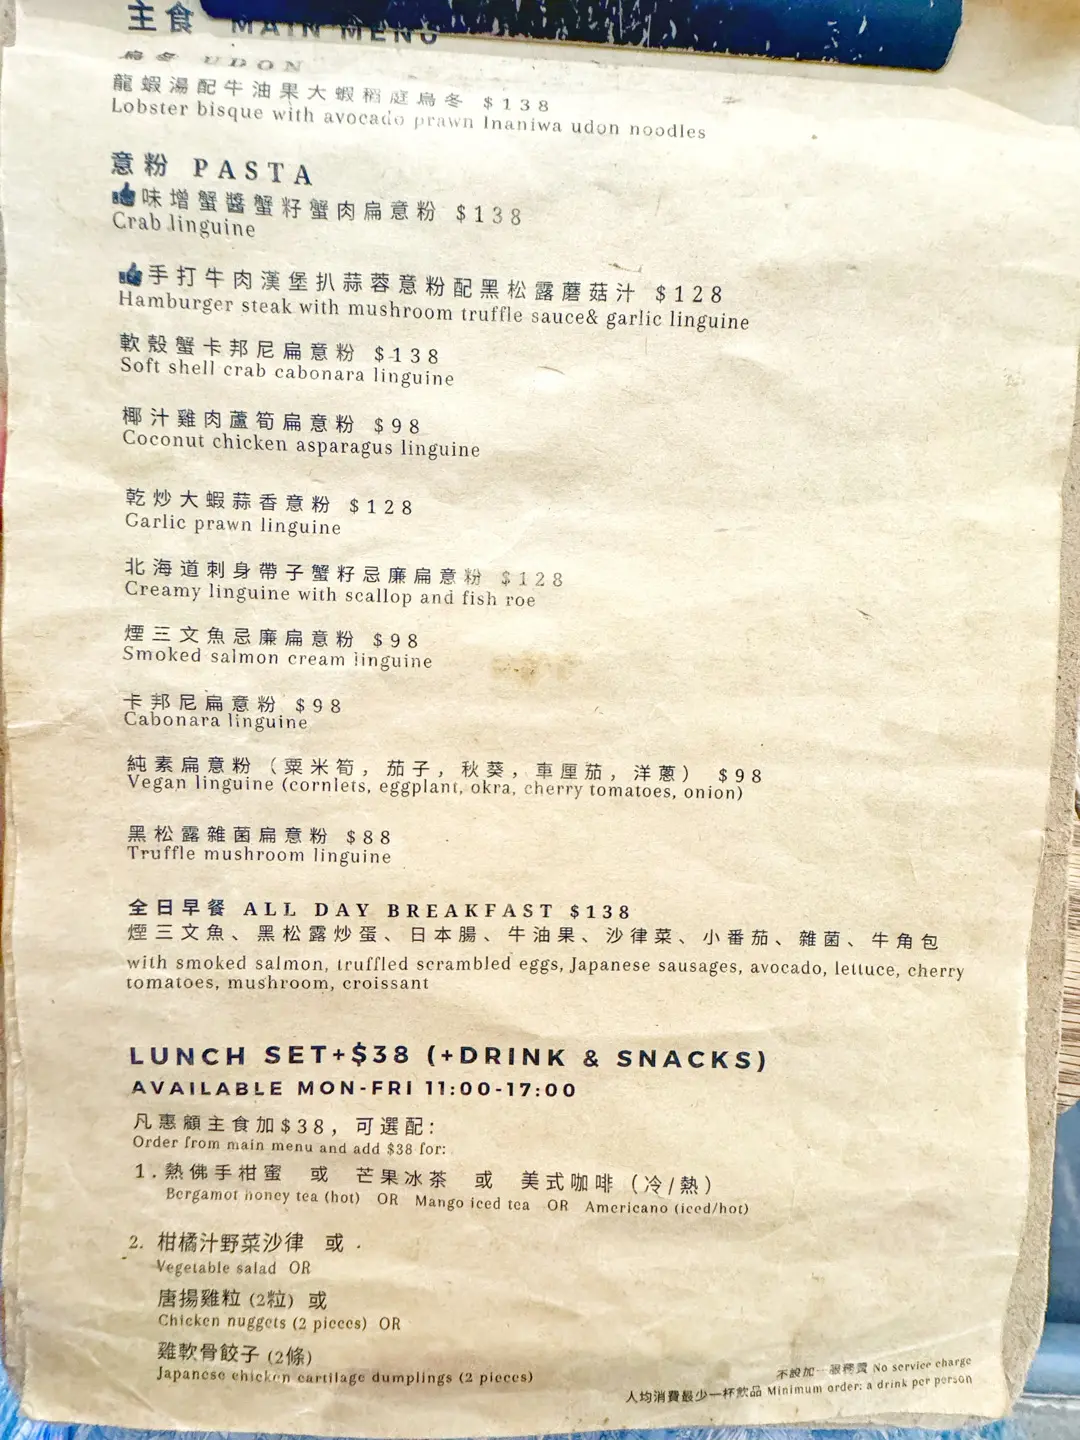 主食 MAIN MENU
烏冬 UDON
龍蝦湯配牛油果大蝦稻庭烏冬 $138
Lobster bisque with avocado prawn Inaniwa udon noodles
意粉 PASTA
味增蟹醬蟹籽蟹肉扁意粉 $138
Crab linguine
手打牛肉漢堡扒蒜蓉意粉配黑松露蘑菇汁 $128
Hamburger steak with mushroom truffle sauce& garlic linguine
軟殼蟹卡邦尼扁意粉 $138
Soft shell crab cabonara linguine
椰汁雞肉蘆筍扁意粉 $98
Coconut chicken asparagus linguine
乾炒大蝦蒜香意粉 $128
Garlic prawn linguine
北海道刺身帶子蟹籽忌廉扁意粉 $128
Creamy linguine with scallop and fish roe
煙三文魚忌廉扁意粉 $98
Smoked salmon cream linguine
卡邦尼扁意粉 $98
Cabonara linguine
純素扁意粉（粟米筍，茄子，秋葵，車厘茄，洋蔥） $98
Vegan linguine (cornlets, eggplant, okra, cherry tomatoes, onion)
黑松露雜菌扁意粉 $88
Truffle mushroom linguine
全日早餐 ALL DAY BREAKFAST $138
煙三文魚、黑松露炒蛋、日本腸、牛油果、沙律菜、小番茄、雜菌、牛角包
with smoked salmon, truffled scrambled eggs, Japanese sausages, avocado, lettuce, cherry
tomatoes, mushroom, croissant
LUNCH SET+$38 (+DRINK & SNACKS)
AVAILABLE MON-FRI 11:00-17:00
凡惠顧主食加$38，可選配：
Order from main menu and add $38 for:
1. 熱佛手柑蜜 或 芒果冰茶 或 美式咖啡（冷/熱）
Bergamot honey tea (hot) OR Mango iced tea OR Americano (iced/hot)
2. 柑橘汁野菜沙律 或
Vegetable salad OR
唐揚雞粒 (2粒) 或
Chicken nuggets (2 pieces) OR
雞軟骨餃子 (2條)
Japanese chicken cartilage dumplings (2 pieces)
不設加一服務費 No service charge
人均消費最少一杯飲品 Minimum order: a drink per person